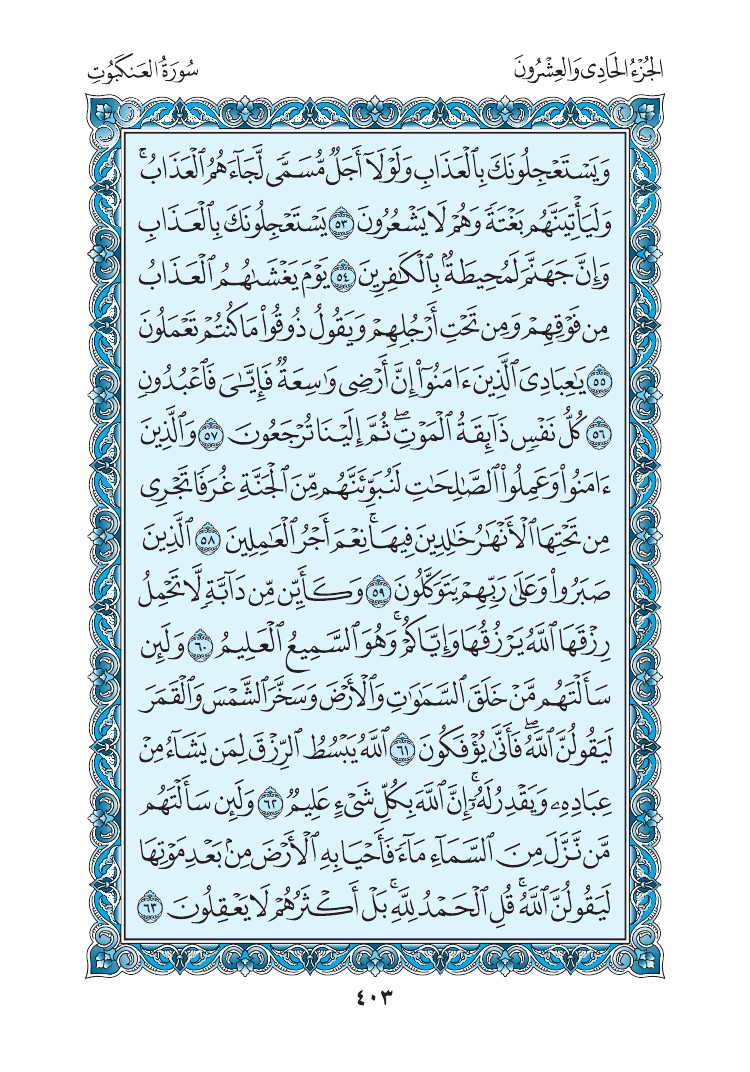 الجُزْءُ الحَادِى وَالعِشْرُونَ
سُورَةُ العَنكَبُوتِ
وَيَسْتَعْجِلُونَكَ بِٱلْعَذَابِ وَلَوْلَآ أَجَلٌ مُّسَمًّى لَّجَآءَهُمُ ٱلْعَذَابُۚ
وَلَيَأْتِيَنَّهُم بَغْتَةً وَهُمْ لَا يَشْعُرُونَ ٥٣ يَسْتَعْجِلُونَكَ بِٱلْعَذَابِ
وَإِنَّ جَهَنَّمَ لَمُحِيطَةٌۢ بِٱلْكَٰفِرِينَ ٥٤ يَوْمَ يَغْشَىٰهُمُ ٱلْعَذَابُ
مِن فَوْقِهِمْ وَمِن تَحْتِ أَرْجُلِهِمْ وَيَقُولُ ذُوقُوا۟ مَا كُنتُمْ تَعْمَلُونَ
٥٥ يَٰعِبَادِىَ ٱلَّذِينَ ءَامَنُوٓا۟ إِنَّ أَرْضِى وَٰسِعَةٌ فَإِيَّٰىَ فَٱعْبُدُونِ
٥٦ كُلُّ نَفْسٍ ذَآئِقَةُ ٱلْمَوْتِۖ ثُمَّ إِلَيْنَا تُرْجَعُونَ ٥٧ وَٱلَّذِينَ
ءَامَنُوا۟ وَعَمِلُوا۟ ٱلصَّٰلِحَٰتِ لَنُبَوِّئَنَّهُم مِّنَ ٱلْجَنَّةِ غُرَفًا تَجْرِى
مِن تَحْتِهَا ٱلْأَنْهَٰرُ خَٰلِدِينَ فِيهَاۚ نِعْمَ أَجْرُ ٱلْعَٰمِلِينَ ٥٨ ٱلَّذِينَ
صَبَرُوا۟ وَعَلَىٰ رَبِّهِمْ يَتَوَكَّلُونَ ٥٩ وَكَأَيِّن مِّن دَآبَّةٍ لَّا تَحْمِلُ
رِزْقَهَا ٱللَّهُ يَرْزُقُهَا وَإِيَّاكُمْۚ وَهُوَ ٱلسَّمِيعُ ٱلْعَلِيمُ ٦٠ وَلَئِن
سَأَلْتَهُم مَّنْ خَلَقَ ٱلسَّمَٰوَٰتِ وَٱلْأَرْضَ وَسَخَّرَ ٱلشَّمْسَ وَٱلْقَمَرَ
لَيَقُولُنَّ ٱللَّهُۖ فَأَنَّىٰ يُؤْفَكُونَ ٦١ ٱللَّهُ يَبْسُطُ ٱلرِّزْقَ لِمَن يَشَآءُ مِنْ
عِبَادِهِۦ وَيَقْدِرُ لَهُۥٓۚ إِنَّ ٱللَّهَ بِكُلِّ شَىْءٍ عَلِيمٌ ٦٢ وَلَئِن سَأَلْتَهُم
مَّن نَّزَّلَ مِنَ ٱلسَّمَآءِ مَآءً فَأَحْيَا بِهِ ٱلْأَرْضَ مِنۢ بَعْدِ مَوْتِهَا
لَيَقُولُنَّ ٱللَّهُۚ قُلِ ٱلْحَمْدُ لِلَّهِۚ بَلْ أَكْثَرُهُمْ لَا يَعْقِلُونَ ٦٣
٤٠٣